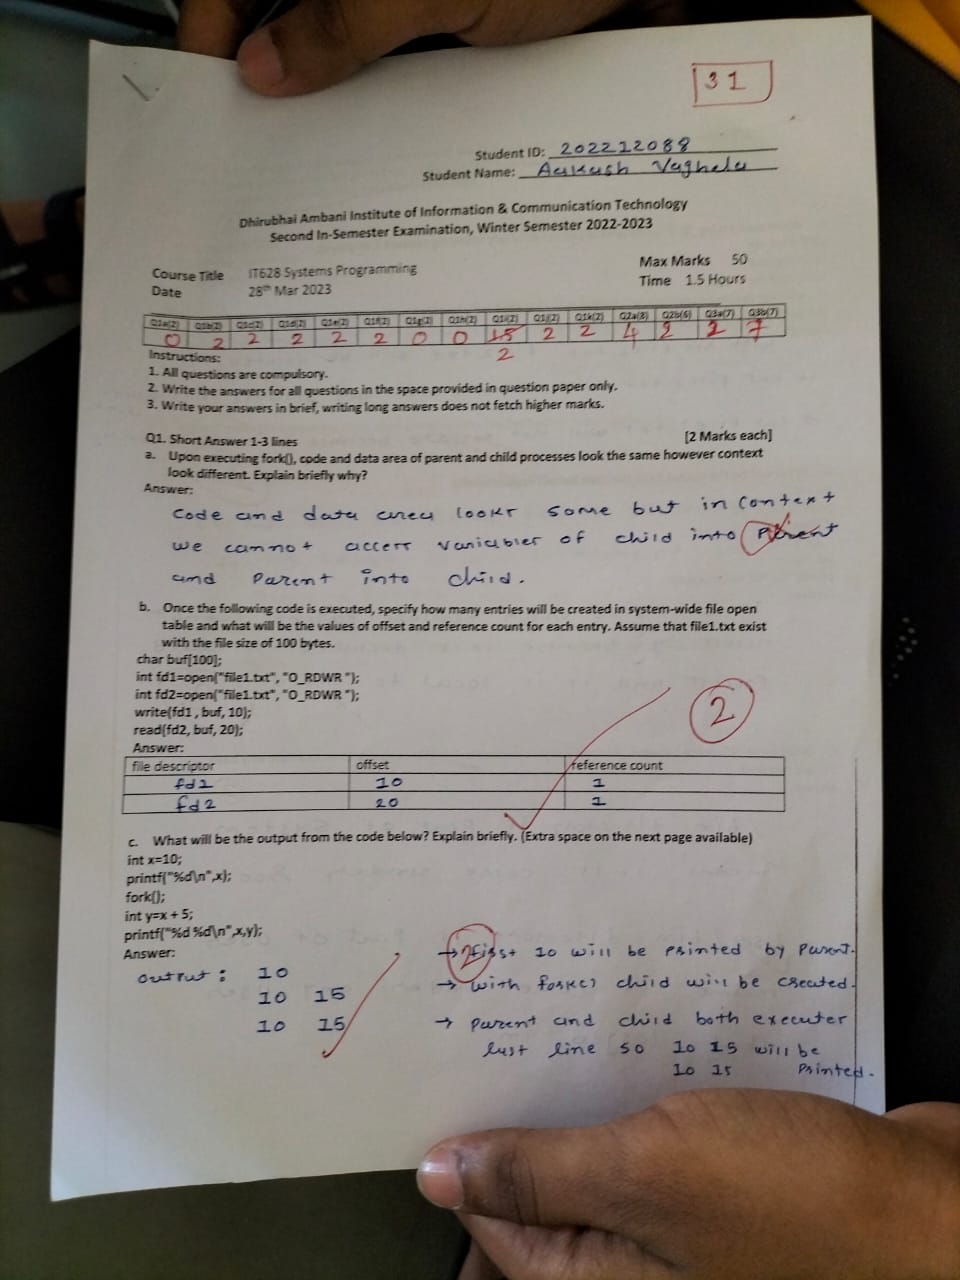 31
Student ID: 202212088
Student Name: Aakash Vaghela
Dhirubhai Ambani Institute of Information & Communication Technology
Second In-Semester Examination, Winter Semester 2022-2023
Course Title IT628 Systems Programming Max Marks 50
Date 28th Mar 2023 Time 1.5 Hours
Q1a(2) Q1b(2) Q1c(2) Q1d(2) Q1e(2) Q1f(2) Q1g(2) Q1h(2) Q1i(2) Q1j(2) Q1k(2) Q2a(8) Q2b(6) Q3a(7) Q3b(7)
0 2 2 2 2 2 0 0 15 2 2 4 2 2 7
2
Instructions:
1. All questions are compulsory.
2. Write the answers for all questions in the space provided in question paper only.
3. Write your answers in brief, writing long answers does not fetch higher marks.
Q1. Short Answer 1-3 lines [2 Marks each]
a. Upon executing fork(), code and data area of parent and child processes look the same however context
look different. Explain briefly why?
Answer:
Code and data area looks same but in context
we cannot access variables of child into parent
and Parent into child.
b. Once the following code is executed, specify how many entries will be created in system-wide file open
table and what will be the values of offset and reference count for each entry. Assume that file1.txt exist
with the file size of 100 bytes.
char buf[100];
int fd1=open("file1.txt", "O_RDWR ");
int fd2=open("file1.txt", "O_RDWR ");
write(fd1 , buf, 10);
read(fd2, buf, 20);
2
Answer:
file descriptor offset reference count
fd1 10 1
fd2 20 1
c. What will be the output from the code below? Explain briefly. (Extra space on the next page available)
int x=10;
printf("%d\n",x);
fork();
int y=x + 5;
printf("%d %d\n",x,y);
Answer:
output : 10
10 15
10 15
2
→ first 10 will be printed by parent.
→ with fork() child will be created.
→ parent and child both executes
last line so 10 15 will be
10 15 Printed.